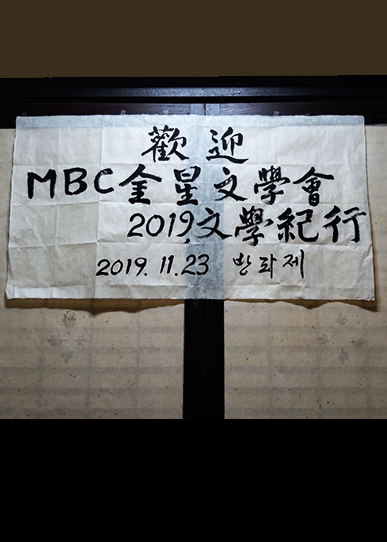 歡迎
MBC金星文學會
2019文學紀行
2019. 11. 23 방화제